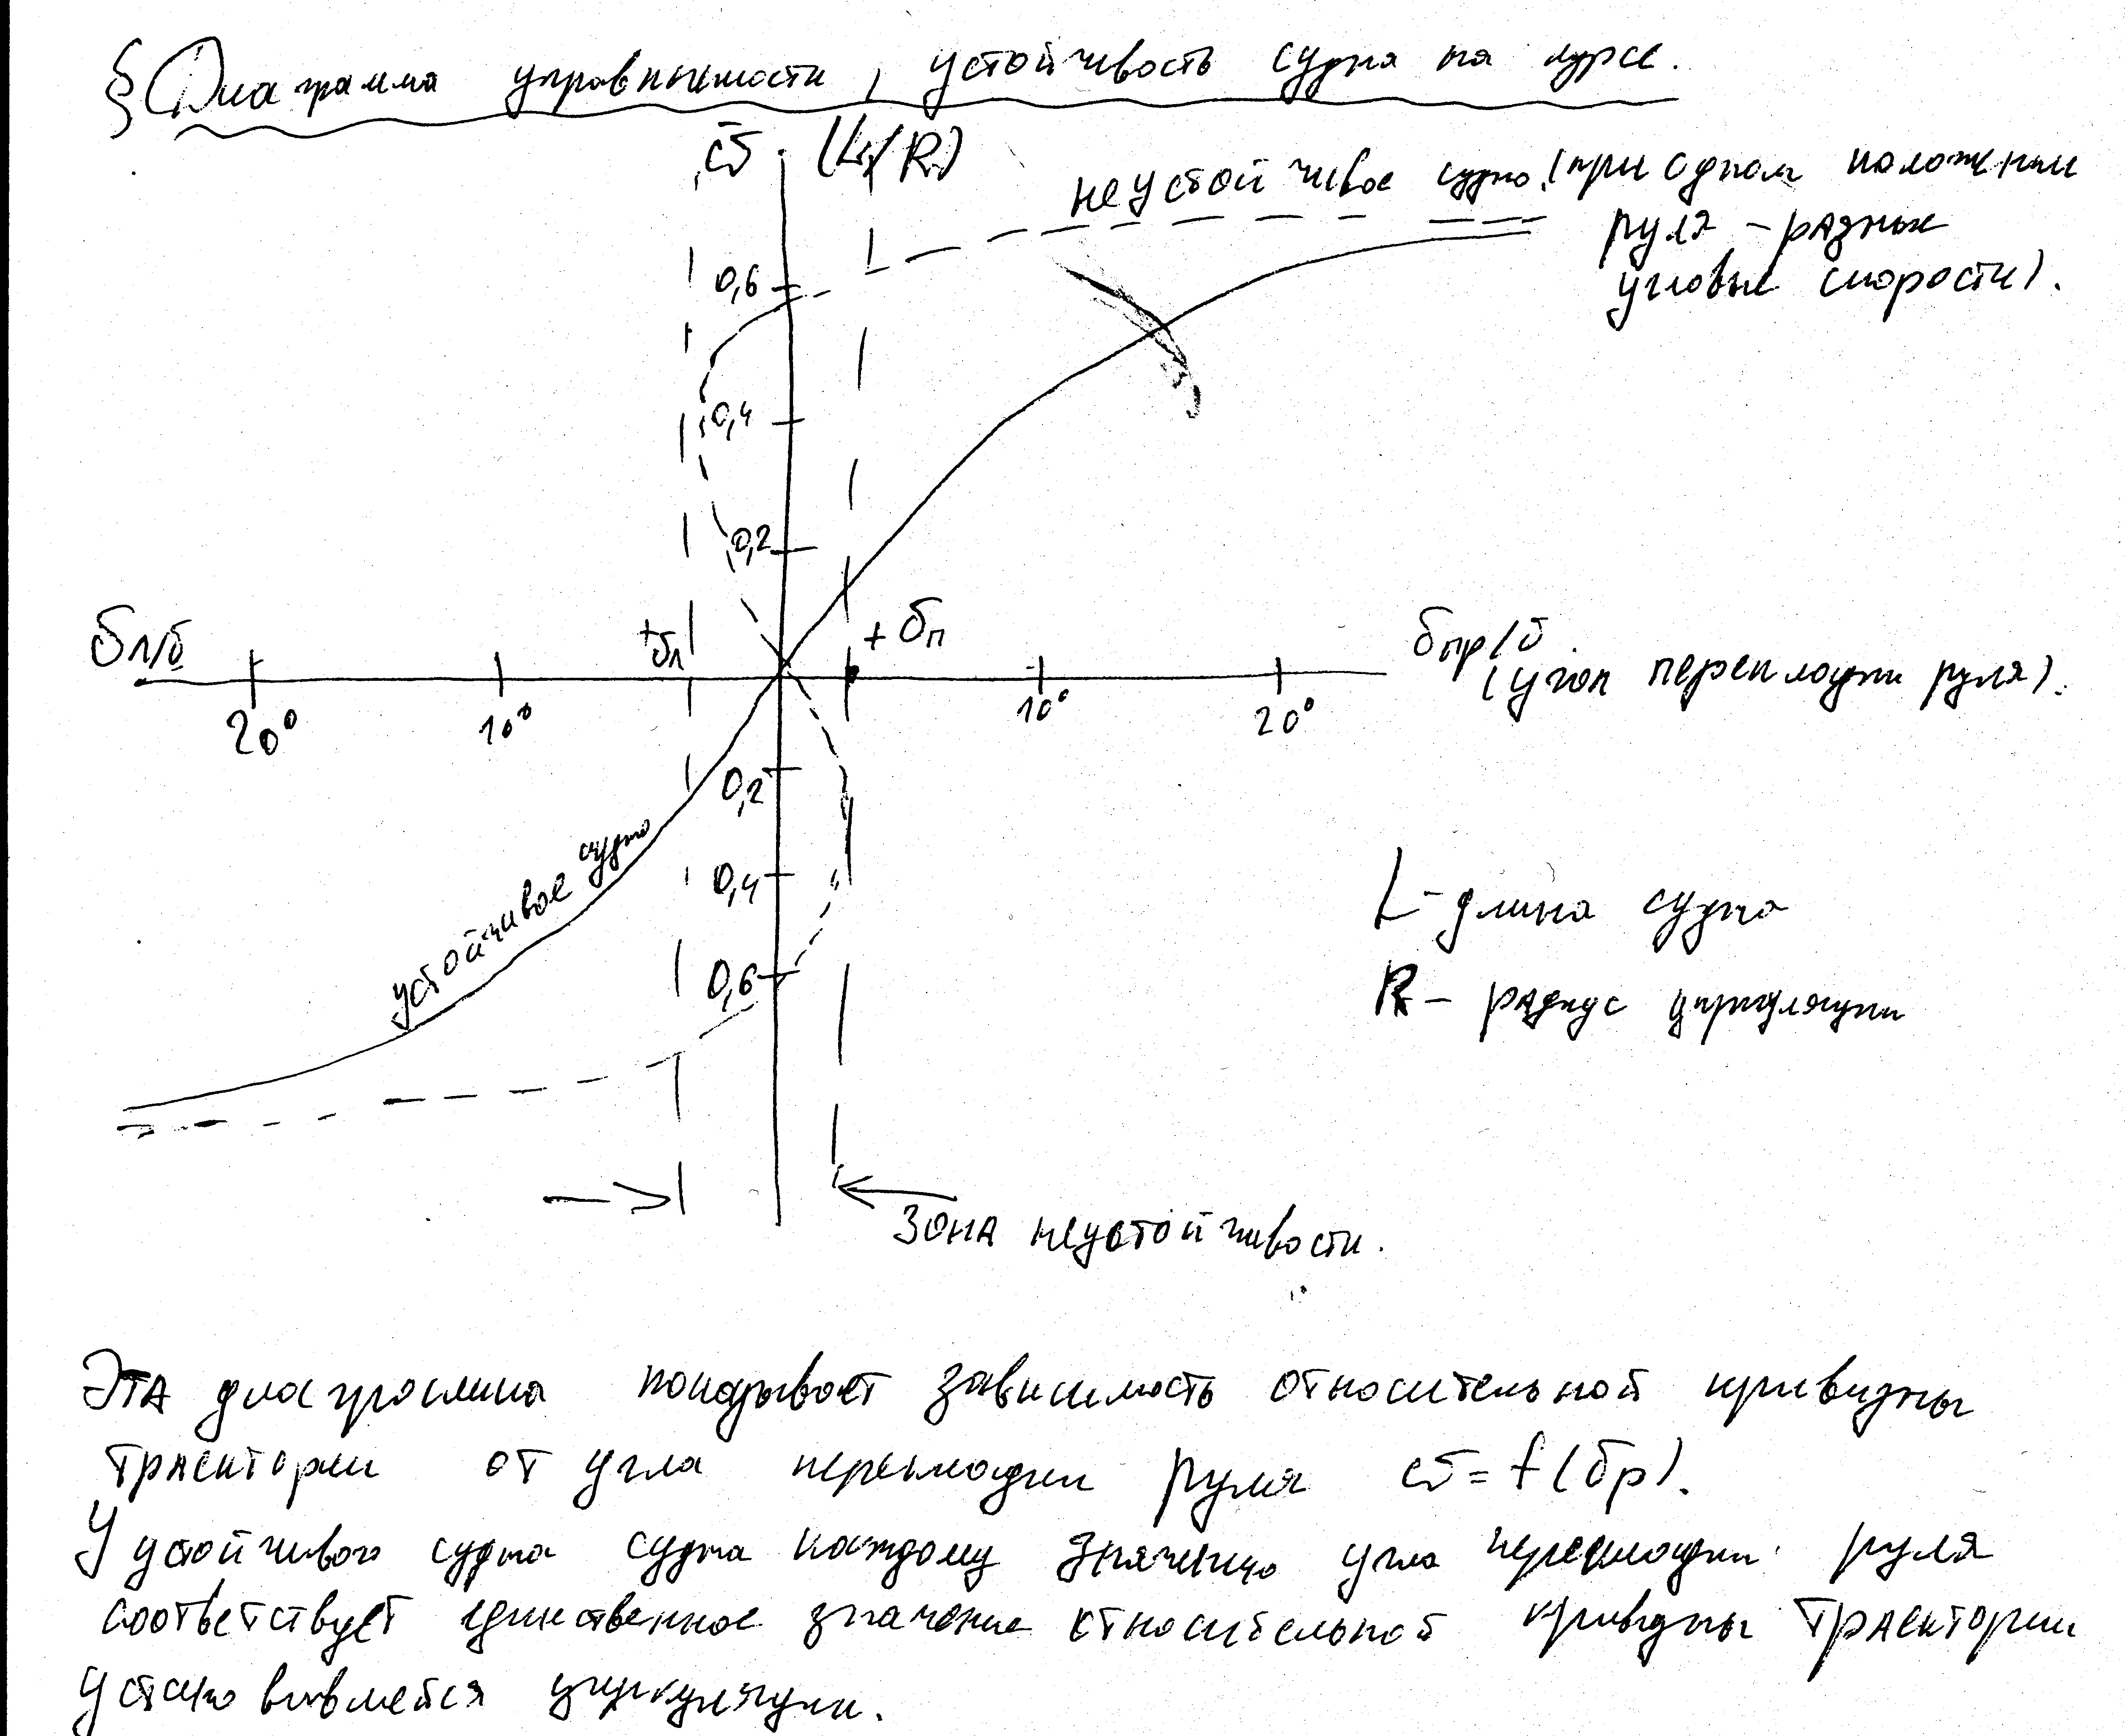 § Диаграмма управляемости, устойчивость судна на курсе.
ω̄ (L/R)
неустойчивое судно (при одном положении
руля - разные
угловые скорости).
0,6
0,4
0,2
δл/б
+δл
+δп
δпр/б
(угол перекладки руля).
20°
10°
10°
20°
0,2
0,4
0,6
устойчивое судно
L - длина судна
R - радиус циркуляции
зона неустойчивости.
Эта диаграмма показывает зависимость относительной кривизны
траектории от угла перекладки руля ω̄ = f(δр).
У устойчивого судна судна каждому значению угла перекладки руля
соответствует единственное значение относительной кривизны траектории
циркуляции.